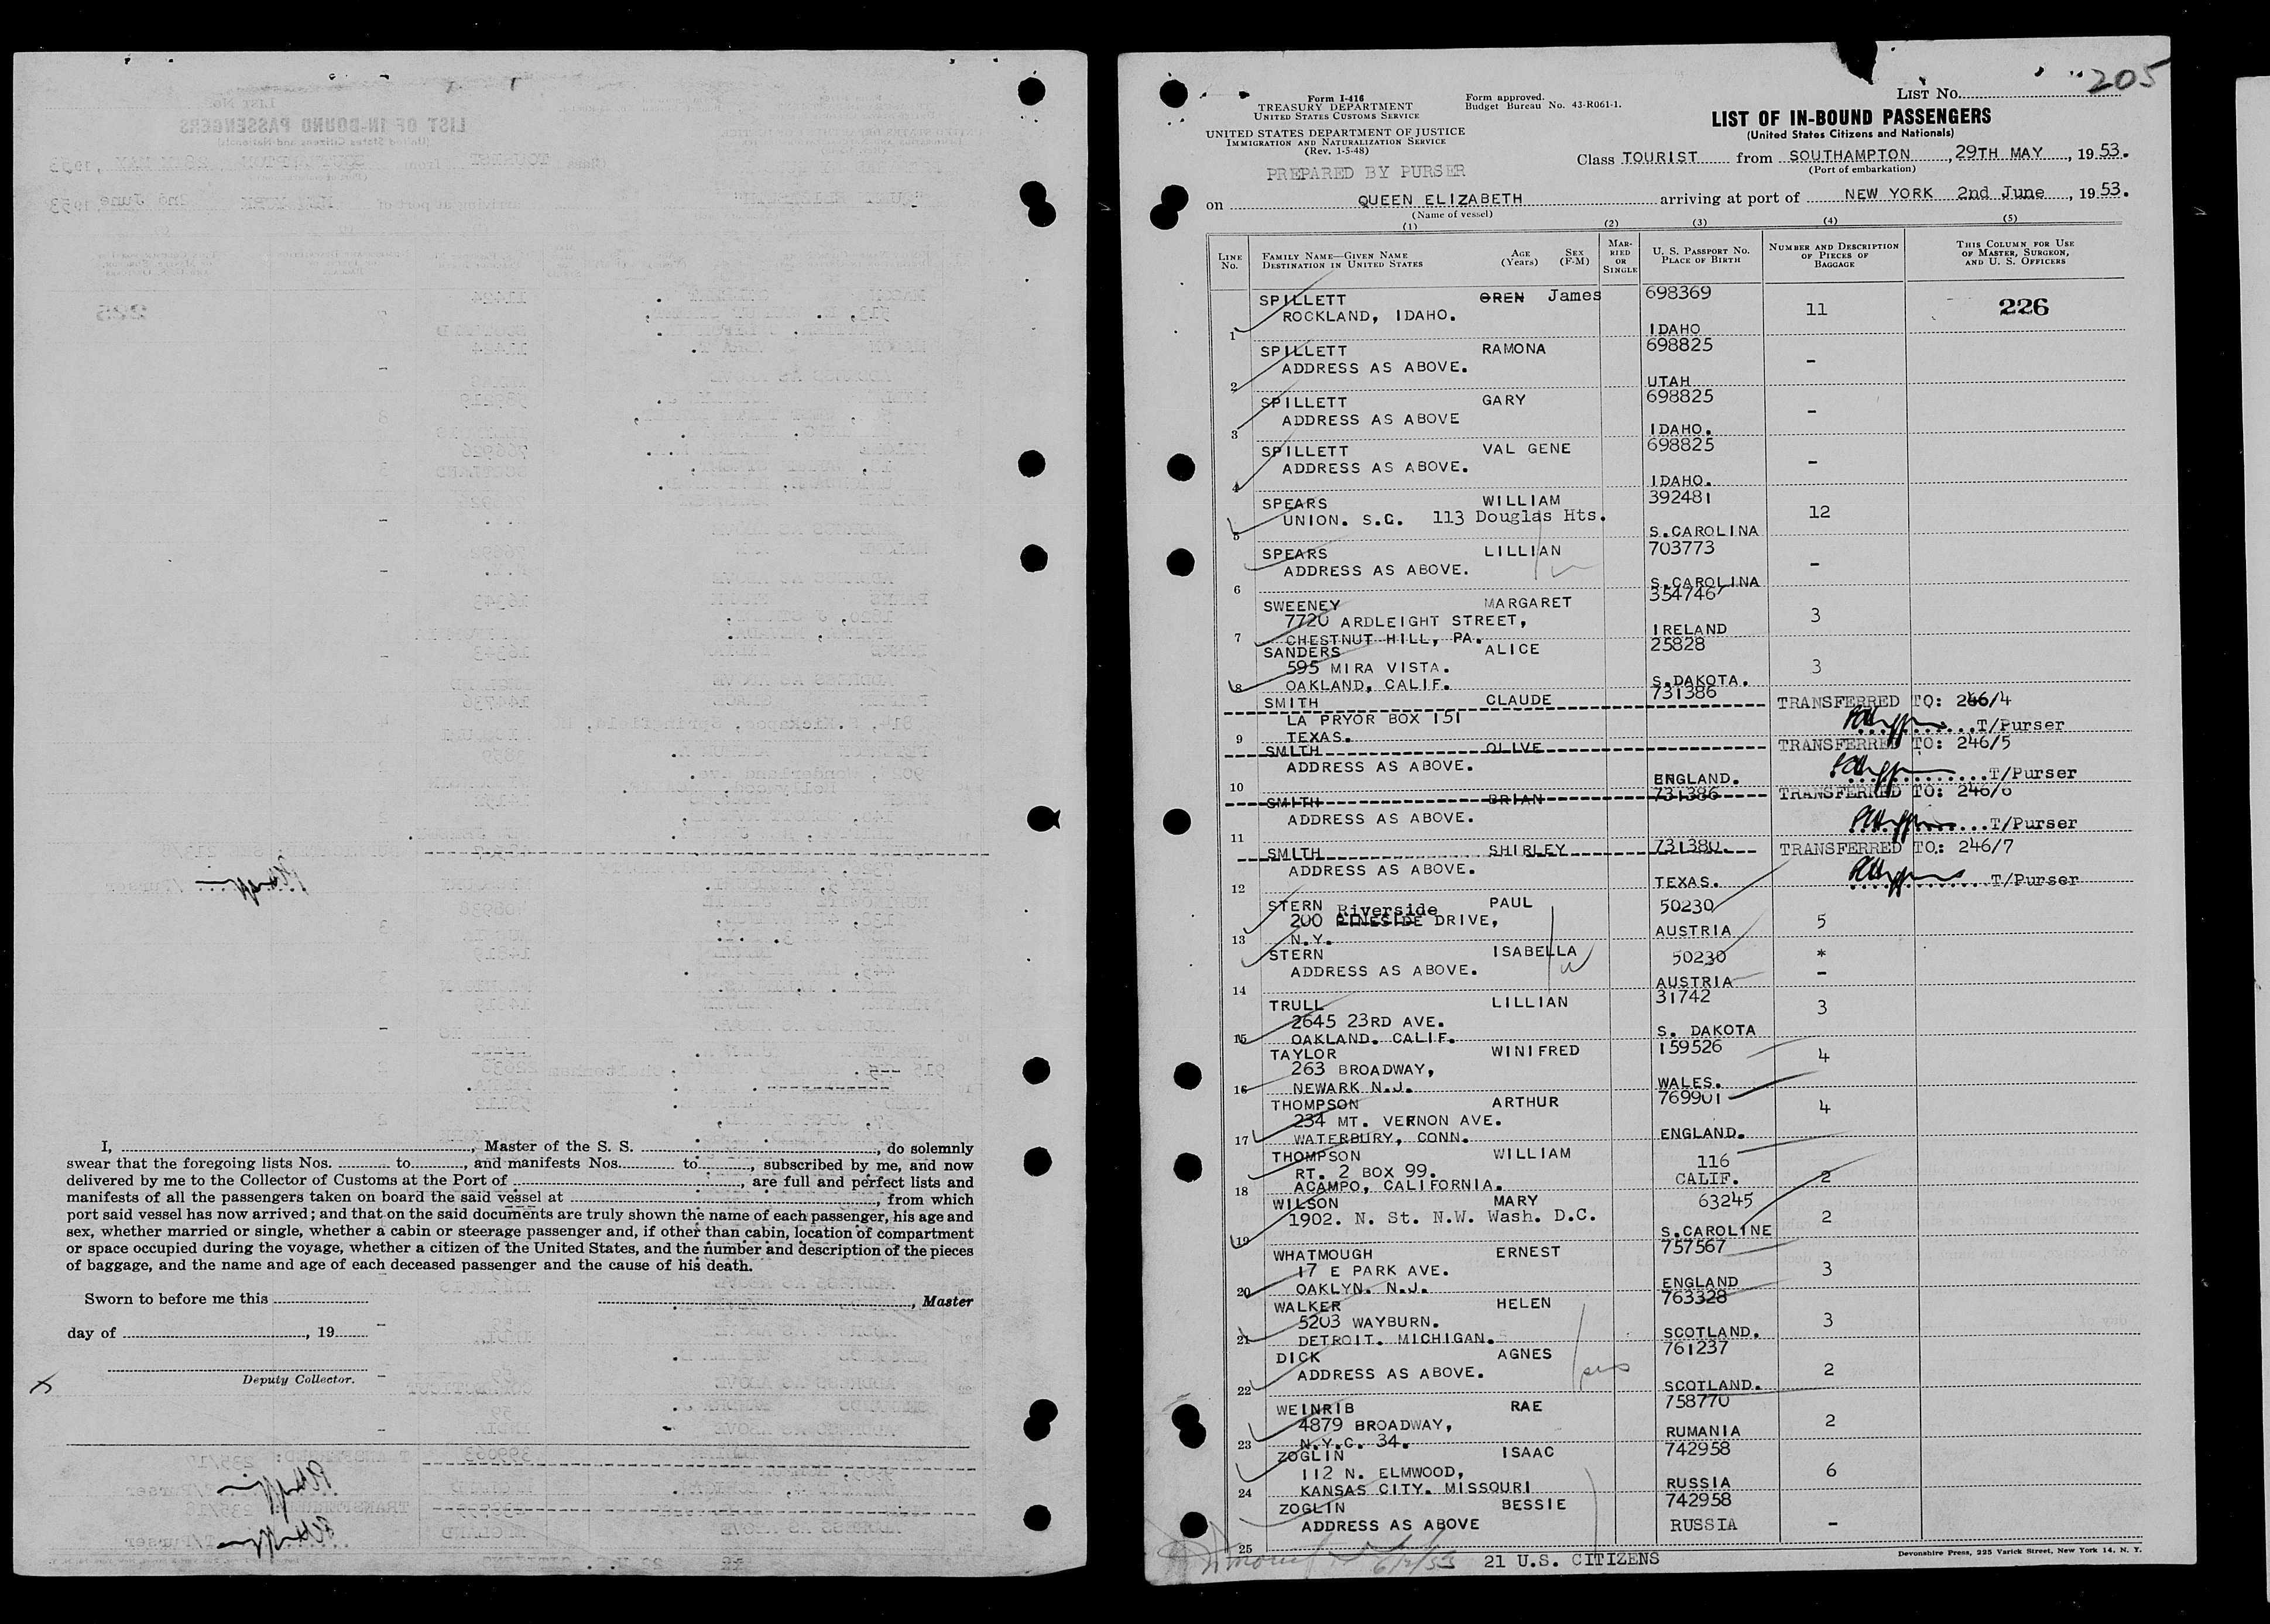 I, , Master of the S. S. , do solemnly
swear that the foregoing lists Nos. to , and manifests Nos. to , subscribed by me, and now
delivered by me to the Collector of Customs at the Port of , are full and perfect lists and
manifests of all the passengers taken on board the said vessel at , from which
port said vessel has now arrived; and that on the said documents are truly shown the name of each passenger, his age and
sex, whether married or single, whether a cabin or steerage passenger and, if other than cabin, location of compartment
or space occupied during the voyage, whether a citizen of the United States, and the number and description of the pieces
of baggage, and the name and age of each deceased passenger and the cause of his death.
Sworn to before me this , Master
day of , 19
Deputy Collector.
205
Form I-416
TREASURY DEPARTMENT
UNITED STATES CUSTOMS SERVICE
Form approved.
Budget Bureau No. 43-R061-1.
LIST No.
UNITED STATES DEPARTMENT OF JUSTICE
IMMIGRATION AND NATURALIZATION SERVICE
(Rev. 1-5-48)
LIST OF IN-BOUND PASSENGERS
(United States Citizens and Nationals)
PREPARED BY PURSER
Class TOURIST from SOUTHAMPTON, 29TH MAY, 1953.
(Port of embarkation)
on QUEEN ELIZABETH arriving at port of NEW YORK 2nd June, 1953.
(Name of vessel)
(1) (2) (3) (4) (5)
LINE No. FAMILY NAME—GIVEN NAME DESTINATION IN UNITED STATES AGE (Years) SEX (F-M) MARRIED OR SINGLE U. S. PASSPORT NO. PLACE OF BIRTH NUMBER AND DESCRIPTION OF PIECES OF BAGGAGE THIS COLUMN FOR USE OF MASTER, SURGEON, AND U. S. OFFICERS
SPILLETT OREN James 698369
ROCKLAND, IDAHO. 11 226
1 IDAHO
SPILLETT RAMONA 698825
ADDRESS AS ABOVE. -
2 UTAH
SPILLETT GARY 698825
ADDRESS AS ABOVE -
3 IDAHO.
SPILLETT VAL GENE 698825
ADDRESS AS ABOVE. -
4 IDAHO.
SPEARS WILLIAM 392481
UNION. S.C. 113 Douglas Hts. 12
5 S.CAROLINA
SPEARS LILLIAN 703773
ADDRESS AS ABOVE. -
6 S.CAROLINA
SWEENEY MARGARET 354746
7720 ARDLEIGHT STREET, 3
7 CHESTNUT HILL, PA. IRELAND
SANDERS ALICE 25828
595 MIRA VISTA. 3
8 OAKLAND, CALIF. S.DAKOTA.
SMITH CLAUDE 731386 TRANSFERRED TO: 246/4
LA PRYOR BOX 151 T/Purser
9 TEXAS.
SMITH OLIVE TRANSFERRED TO: 246/5
ADDRESS AS ABOVE. T/Purser
10 ENGLAND.
SMITH BRIAN 731386 TRANSFERRED TO: 246/6
ADDRESS AS ABOVE. T/Purser
11
SMITH SHIRLEY 731380. TRANSFERRED TO: 246/7
ADDRESS AS ABOVE. T/Purser
12 TEXAS.
STERN PAUL 50230
200 Riverside DRIVE, 5
13 N.Y. AUSTRIA
STERN ISABELLA 50230 *
ADDRESS AS ABOVE. -
14 AUSTRIA
TRULL LILLIAN 31742
2645 23RD AVE. 3
15 OAKLAND. CALIF. S. DAKOTA
TAYLOR WINIFRED 159526
263 BROADWAY, 4
16 NEWARK N.J. WALES.
THOMPSON ARTHUR 769901
234 MT. VERNON AVE. 4
17 WATERBURY, CONN. ENGLAND.
THOMPSON WILLIAM 116
RT. 2 BOX 99. CALIF. 2
18 ACAMPO, CALIFORNIA.
WILSON MARY 63245
1902. N. St. N.W. Wash. D.C. 2
19 S.CAROLINE
WHATMOUGH ERNEST 757567
17 E PARK AVE. 3
20 OAKLYN. N.J. ENGLAND
WALKER HELEN 763328
5203 WAYBURN. 3
21 DETROIT. MICHIGAN. SCOTLAND.
DICK AGNES 761237
ADDRESS AS ABOVE. 2
22 SCOTLAND.
WEINRIB RAE 758770
4879 BROADWAY, 2
23 N.Y.C. 34. RUMANIA
ZOGLIN ISAAC 742958
112 N. ELMWOOD, 6
24 KANSAS CITY. MISSOURI RUSSIA
ZOGLIN BESSIE 742958
ADDRESS AS ABOVE RUSSIA -
25
6/2/53 21 U.S. CITIZENS
Devonshire Press, 225 Varick Street, New York 14, N. Y.